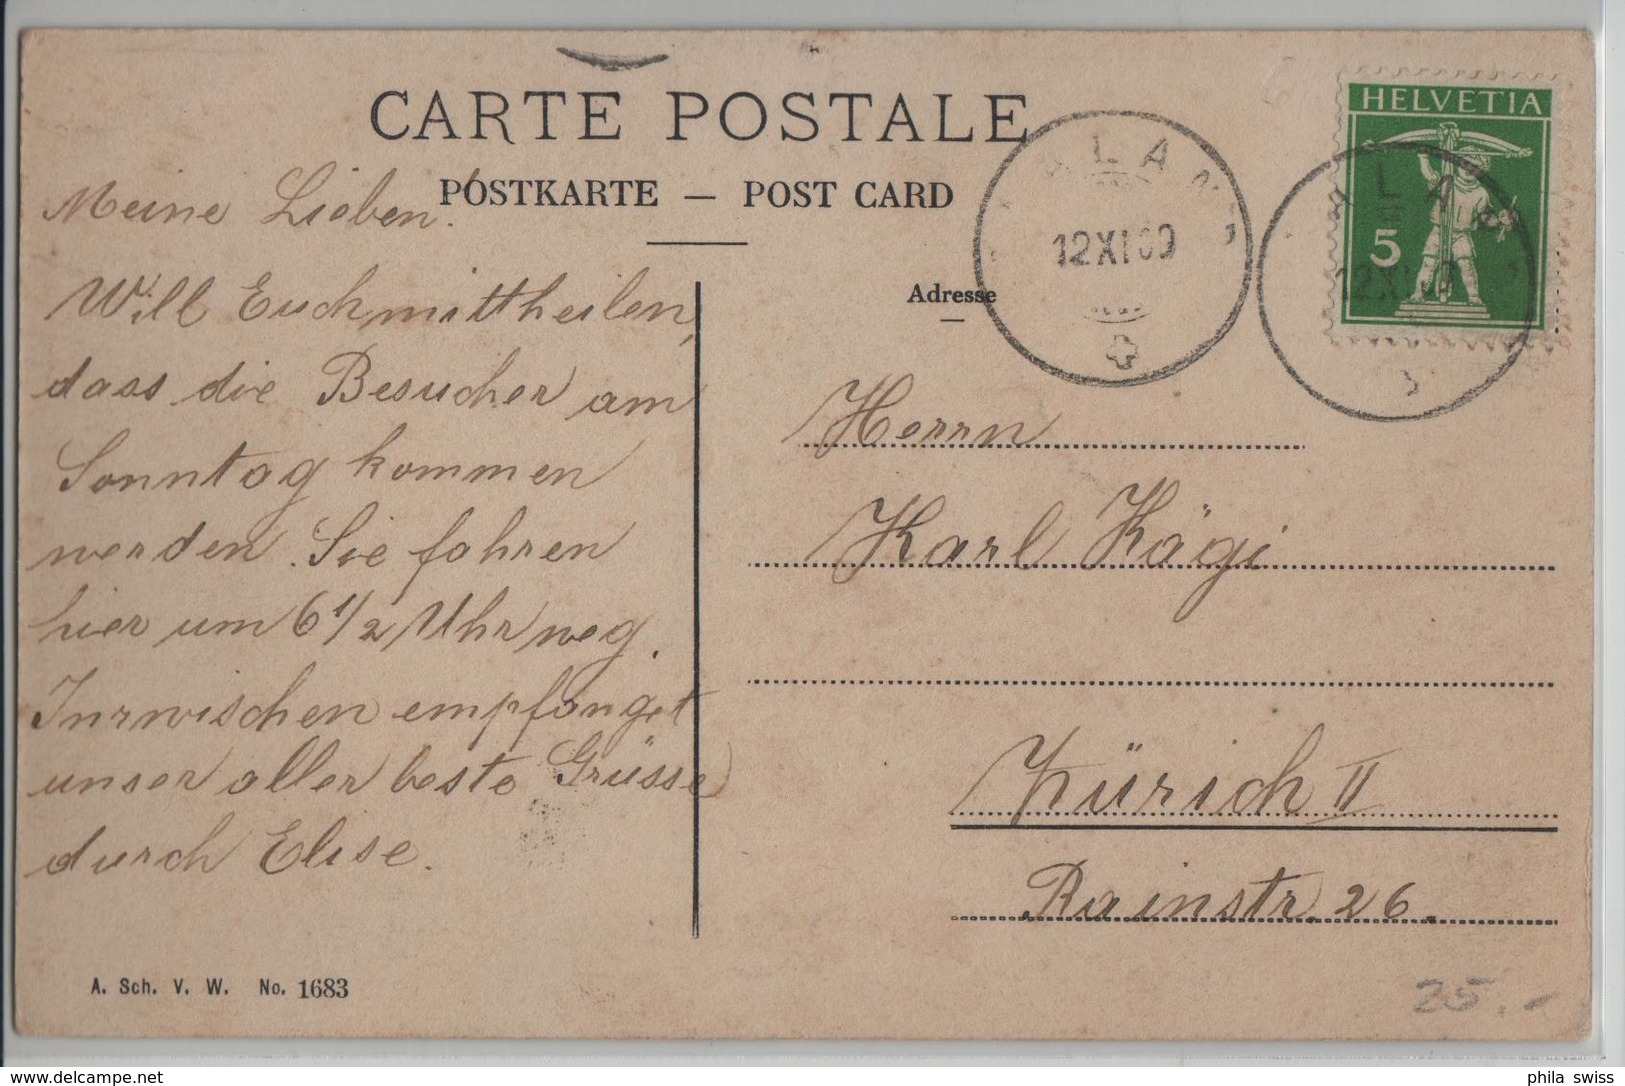 CARTE POSTALE
POSTKARTE — POST CARD
Meine Lieben.
Will Euch mittheilen,
dass die Besucher am
Sonntag kommen
werden. Sie fahren
hier um 6 1/2 Uhr weg.
Inzwischen empfanget
unser aller beste Grüsse
durch Elise.
A. Sch. V. W. No. 1683
HELVETIA
5
12 XI 09
12 XI 09
Adresse
Herrn
Karl Kägi
Zürich II
Rainstr. 26.
25.-
delcampe.net
phila_swiss